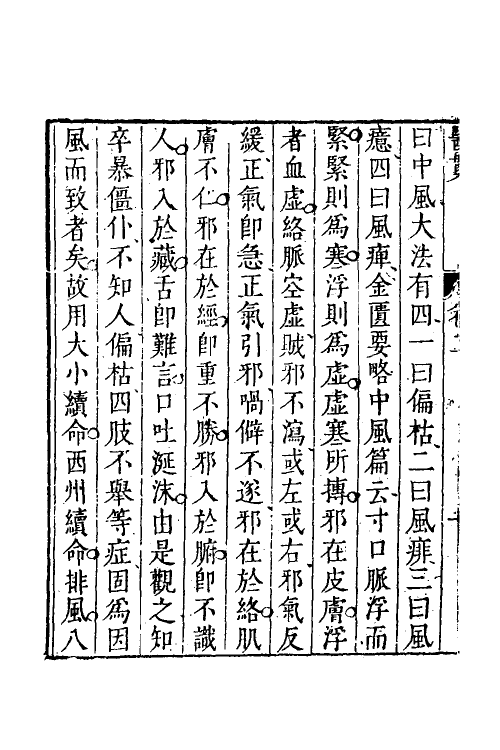 曰中風大法有四一曰偏枯二曰風痱三曰風
癔四曰風痺金匱要略中風篇云寸口脈浮而
緊緊則爲寒浮則爲虛虛寒所搏邪在皮膚浮
者血虛絡脈空虛賊邪不瀉或左或右邪氣反
緩正氣卽急正氣引邪喎僻不遂邪在於絡肌
膚不仁邪在於經卽重不勝邪入於腑卽不識
人邪入於藏舌卽難言口吐涎沫由是觀之知
卒暴僵仆不知人偏枯四肢不舉等症固爲因
風而致者矣故用大小續命西州續命排風八